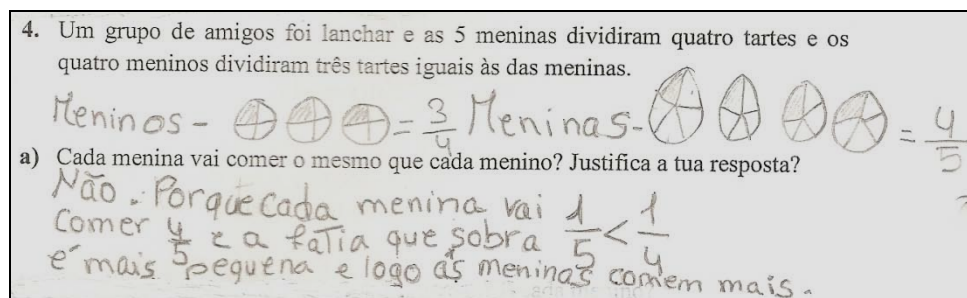 4. Um grupo de amigos foi lanchar e as 5 meninas dividiram quatro tartes e os
quatro meninos dividiram três tartes iguais às das meninas.
Meninos - = 3/4 Meninas - = 4/5
a) Cada menina vai comer o mesmo que cada menino? Justifica a tua resposta?
Não. Porque cada menina vai 1/5 < 1/4
comer 4/5 e a fatia que sobra
é mais pequena e logo as meninas comem mais.